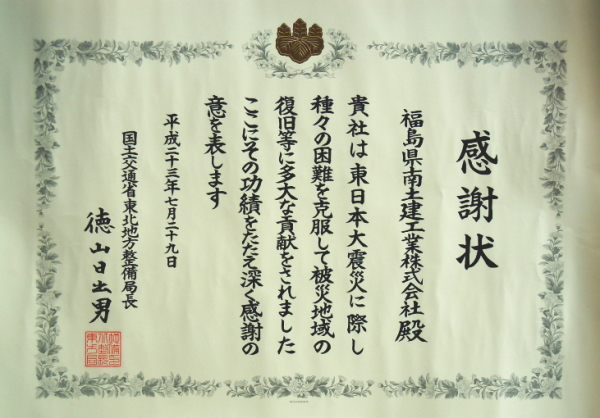 感謝状
福島県南土建工業株式会社 殿
貴社は東日本大震災に際し
種々の困難を克服して被災地域の
復旧等に多大な貢献をされました
ここにその功績をたたえ深く感謝の
意を表します
平成二十三年七月二十九日
国土交通省東北地方整備局長
徳山日出男